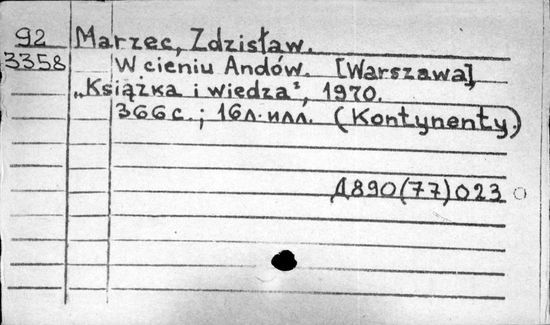 92 Marzec, Zdzisław.
3358 W cieniu Andów. [Warszawa],
„Książka i wiedza", 1970.
366 с.; 16л. илл. (Kontynenty.)
Д890(77)023